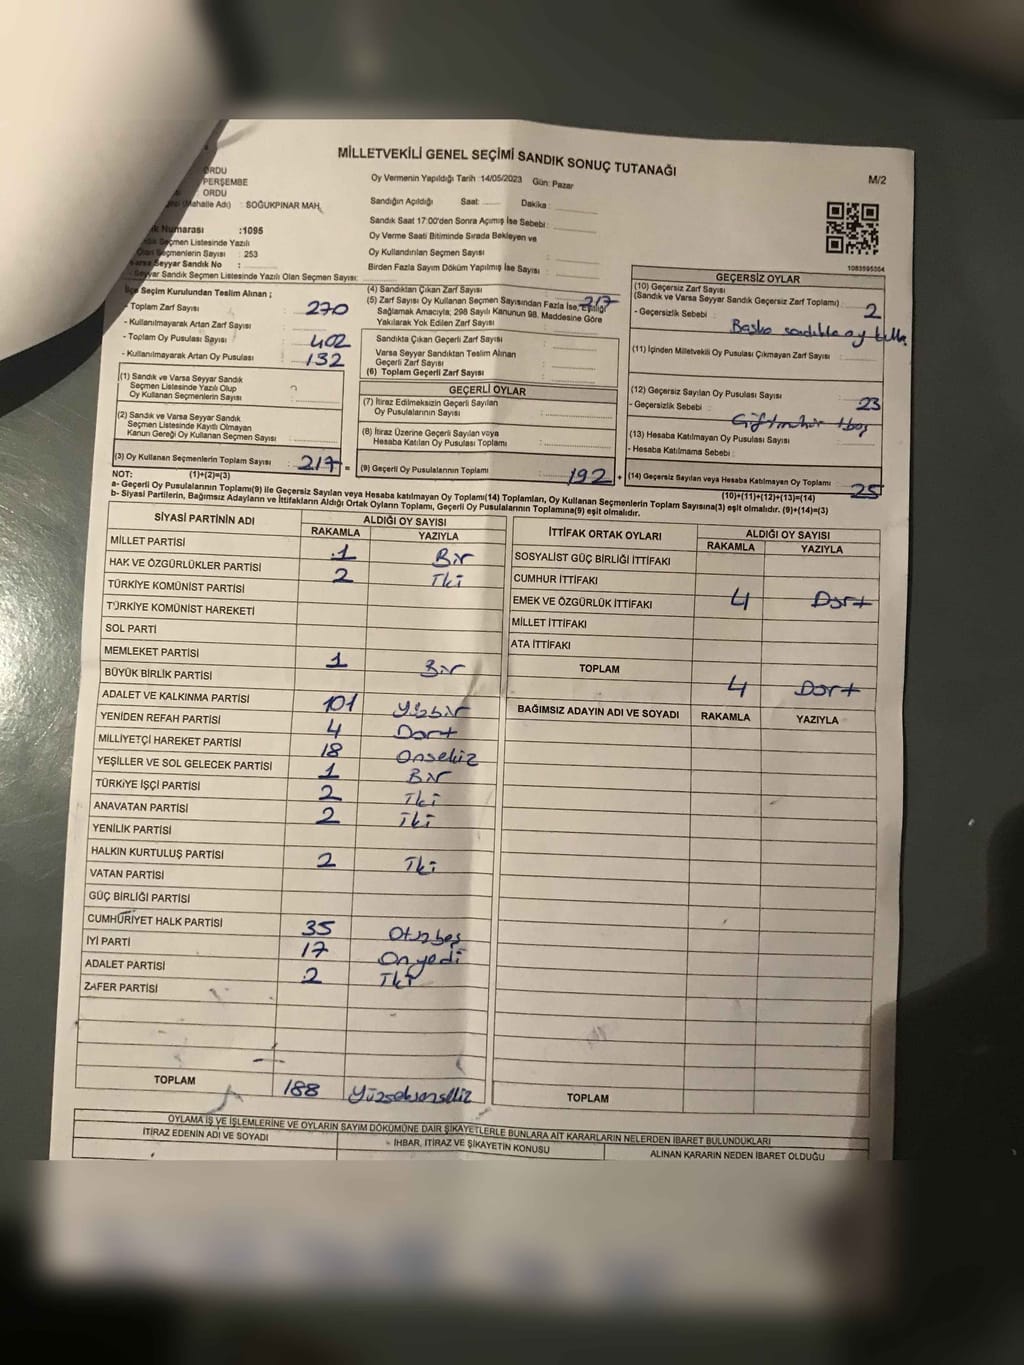 MİLLETVEKİLİ GENEL SEÇİMİ SANDIK SONUÇ TUTANAĞI
M/2
ORDU
PERŞEMBE
ORDU
(Mahalle Adı) : SOĞUKPINAR MAH.
Numarası :1095
Seçmen Listesinde Yazılı
Olan Seçmenlerin Sayısı : 253
Varsa Seyyar Sandık No :
Seyyar Sandık Seçmen Listesinde Yazılı Olan Seçmen Sayısı:
Oy Vermenin Yapıldığı Tarih :14/05/2023 Gün: Pazar
Sandığın Açıldığı Saat: Dakika :
Sandık Saat 17:00'den Sonra Açımış İse Sebebi :
Oy Verme Saati Bitiminde Sırada Bekleyen ve
Oy Kullandırılan Seçmen Sayısı :
Birden Fazla Sayım Döküm Yapılmış İse Sayısı :
1083595304
İlçe Seçim Kurulundan Teslim Alınan ;
- Toplam Zarf Sayısı : 270
- Kullanılmayarak Artan Zarf Sayısı :
- Toplam Oy Pusulası Sayısı : 402
- Kullanılmayarak Artan Oy Pusulası : 132
(1) Sandık ve Varsa Seyyar Sandık
Seçmen Listesinde Yazılı Olup
Oy Kullanan Seçmenlerin Sayısı :
(2) Sandık ve Varsa Seyyar Sandık
Seçmen Listesinde Kayıtlı Olmayan
Kanun Gereği Oy Kullanan Seçmen Sayısı :
(3) Oy Kullanan Seçmenlerin Toplam Sayısı : 217 =
(1)+(2)=(3)
(4) Sandıktan Çıkan Zarf Sayısı : 217
(5) Zarf Sayısı Oy Kullanan Seçmen Sayısından Fazla İse, Eşitliği
Sağlamak Amacıyla; 298 Sayılı Kanunun 98. Maddesine Göre
Yakılarak Yok Edilen Zarf Sayısı :
Sandıkta Çıkan Geçerli Zarf Sayısı :
Varsa Seyyar Sandıktan Teslim Alınan
Geçerli Zarf Sayısı :
(6) Toplam Geçerli Zarf Sayısı :
GEÇERLİ OYLAR
(7) İtiraz Edilmeksizin Geçerli Sayılan
Oy Pusulalarının Sayısı :
(8) İtiraz Üzerine Geçerli Sayılan veya
Hesaba Katılan Oy Pusulası Toplamı :
(9) Geçerli Oy Pusulalarının Toplamı : 192 +
GEÇERSİZ OYLAR
(10) Geçersiz Zarf Sayısı
(Sandık ve Varsa Seyyar Sandık Geçersiz Zarf Toplamı) : 2
- Geçersizlik Sebebi : Başka sandıkta oy
(11) İçinden Milletvekili Oy Pusulası Çıkmayan Zarf Sayısı :
(12) Geçersiz Sayılan Oy Pusulası Sayısı : 23
- Geçersizlik Sebebi : Çift mühür 1 boş
(13) Hesaba Katılmayan Oy Pusulası Sayısı :
- Hesaba Katılmama Sebebi :
(14) Geçersiz Sayılan veya Hesaba Katılmayan Oy Toplamı : 25
(10)+(11)+(12)+(13)=(14)
NOT:
a- Geçerli Oy Pusulalarının Toplamı(9) ile Geçersiz Sayılan veya Hesaba katılmayan Oy Toplamı(14) Toplamları, Oy Kullanan Seçmenlerin Toplam Sayısına(3) eşit olmalıdır. (9)+(14)=(3)
b- Siyasi Partilerin, Bağımsız Adayların ve İttifakların Aldığı Ortak Oyların Toplamı, Geçerli Oy Pusulalarının Toplamına(9) eşit olmalıdır.
SİYASİ PARTİNİN ADI ALDIĞI OY SAYISI
RAKAMLA YAZIYLA
MİLLET PARTİSİ 1 Bir
HAK VE ÖZGÜRLÜKLER PARTİSİ 2 İki
TÜRKİYE KOMÜNİST PARTİSİ
TÜRKİYE KOMÜNİST HAREKETİ
SOL PARTİ
MEMLEKET PARTİSİ 1 Bir
BÜYÜK BİRLİK PARTİSİ
ADALET VE KALKINMA PARTİSİ 101 Yüzbir
YENİDEN REFAH PARTİSİ 4 Dört
MİLLİYETÇİ HAREKET PARTİSİ 18 Onsekiz
YEŞİLLER VE SOL GELECEK PARTİSİ 1 Bir
TÜRKİYE İŞÇİ PARTİSİ 2 İki
ANAVATAN PARTİSİ 2 İki
YENİLİK PARTİSİ
HALKIN KURTULUŞ PARTİSİ 2 İki
VATAN PARTİSİ
GÜÇ BİRLİĞİ PARTİSİ
CUMHURİYET HALK PARTİSİ 35 Otuzbeş
İYİ PARTİ 17 Onyedi
ADALET PARTİSİ 2 İki
ZAFER PARTİSİ
TOPLAM 188 Yüzseksensekiz
İTTİFAK ORTAK OYLARI ALDIĞI OY SAYISI
RAKAMLA YAZIYLA
SOSYALİST GÜÇ BİRLİĞİ İTTİFAKI
CUMHUR İTTİFAKI 4 Dört
EMEK VE ÖZGÜRLÜK İTTİFAKI
MİLLET İTTİFAKI
ATA İTTİFAKI
TOPLAM 4 Dört
BAĞIMSIZ ADAYIN ADI VE SOYADI RAKAMLA YAZIYLA
TOPLAM
OYLAMA İŞ VE İŞLEMLERİNE VE OYLARIN SAYIM DÖKÜMÜNE DAİR ŞİKAYETLERLE BUNLARA AİT KARARLARIN NELERDEN İBARET BULUNDUKLARI
İTİRAZ EDENİN ADI VE SOYADI İHBAR, İTİRAZ VE ŞİKAYETİN KONUSU ALINAN KARARIN NEDEN İBARET OLDUĞU